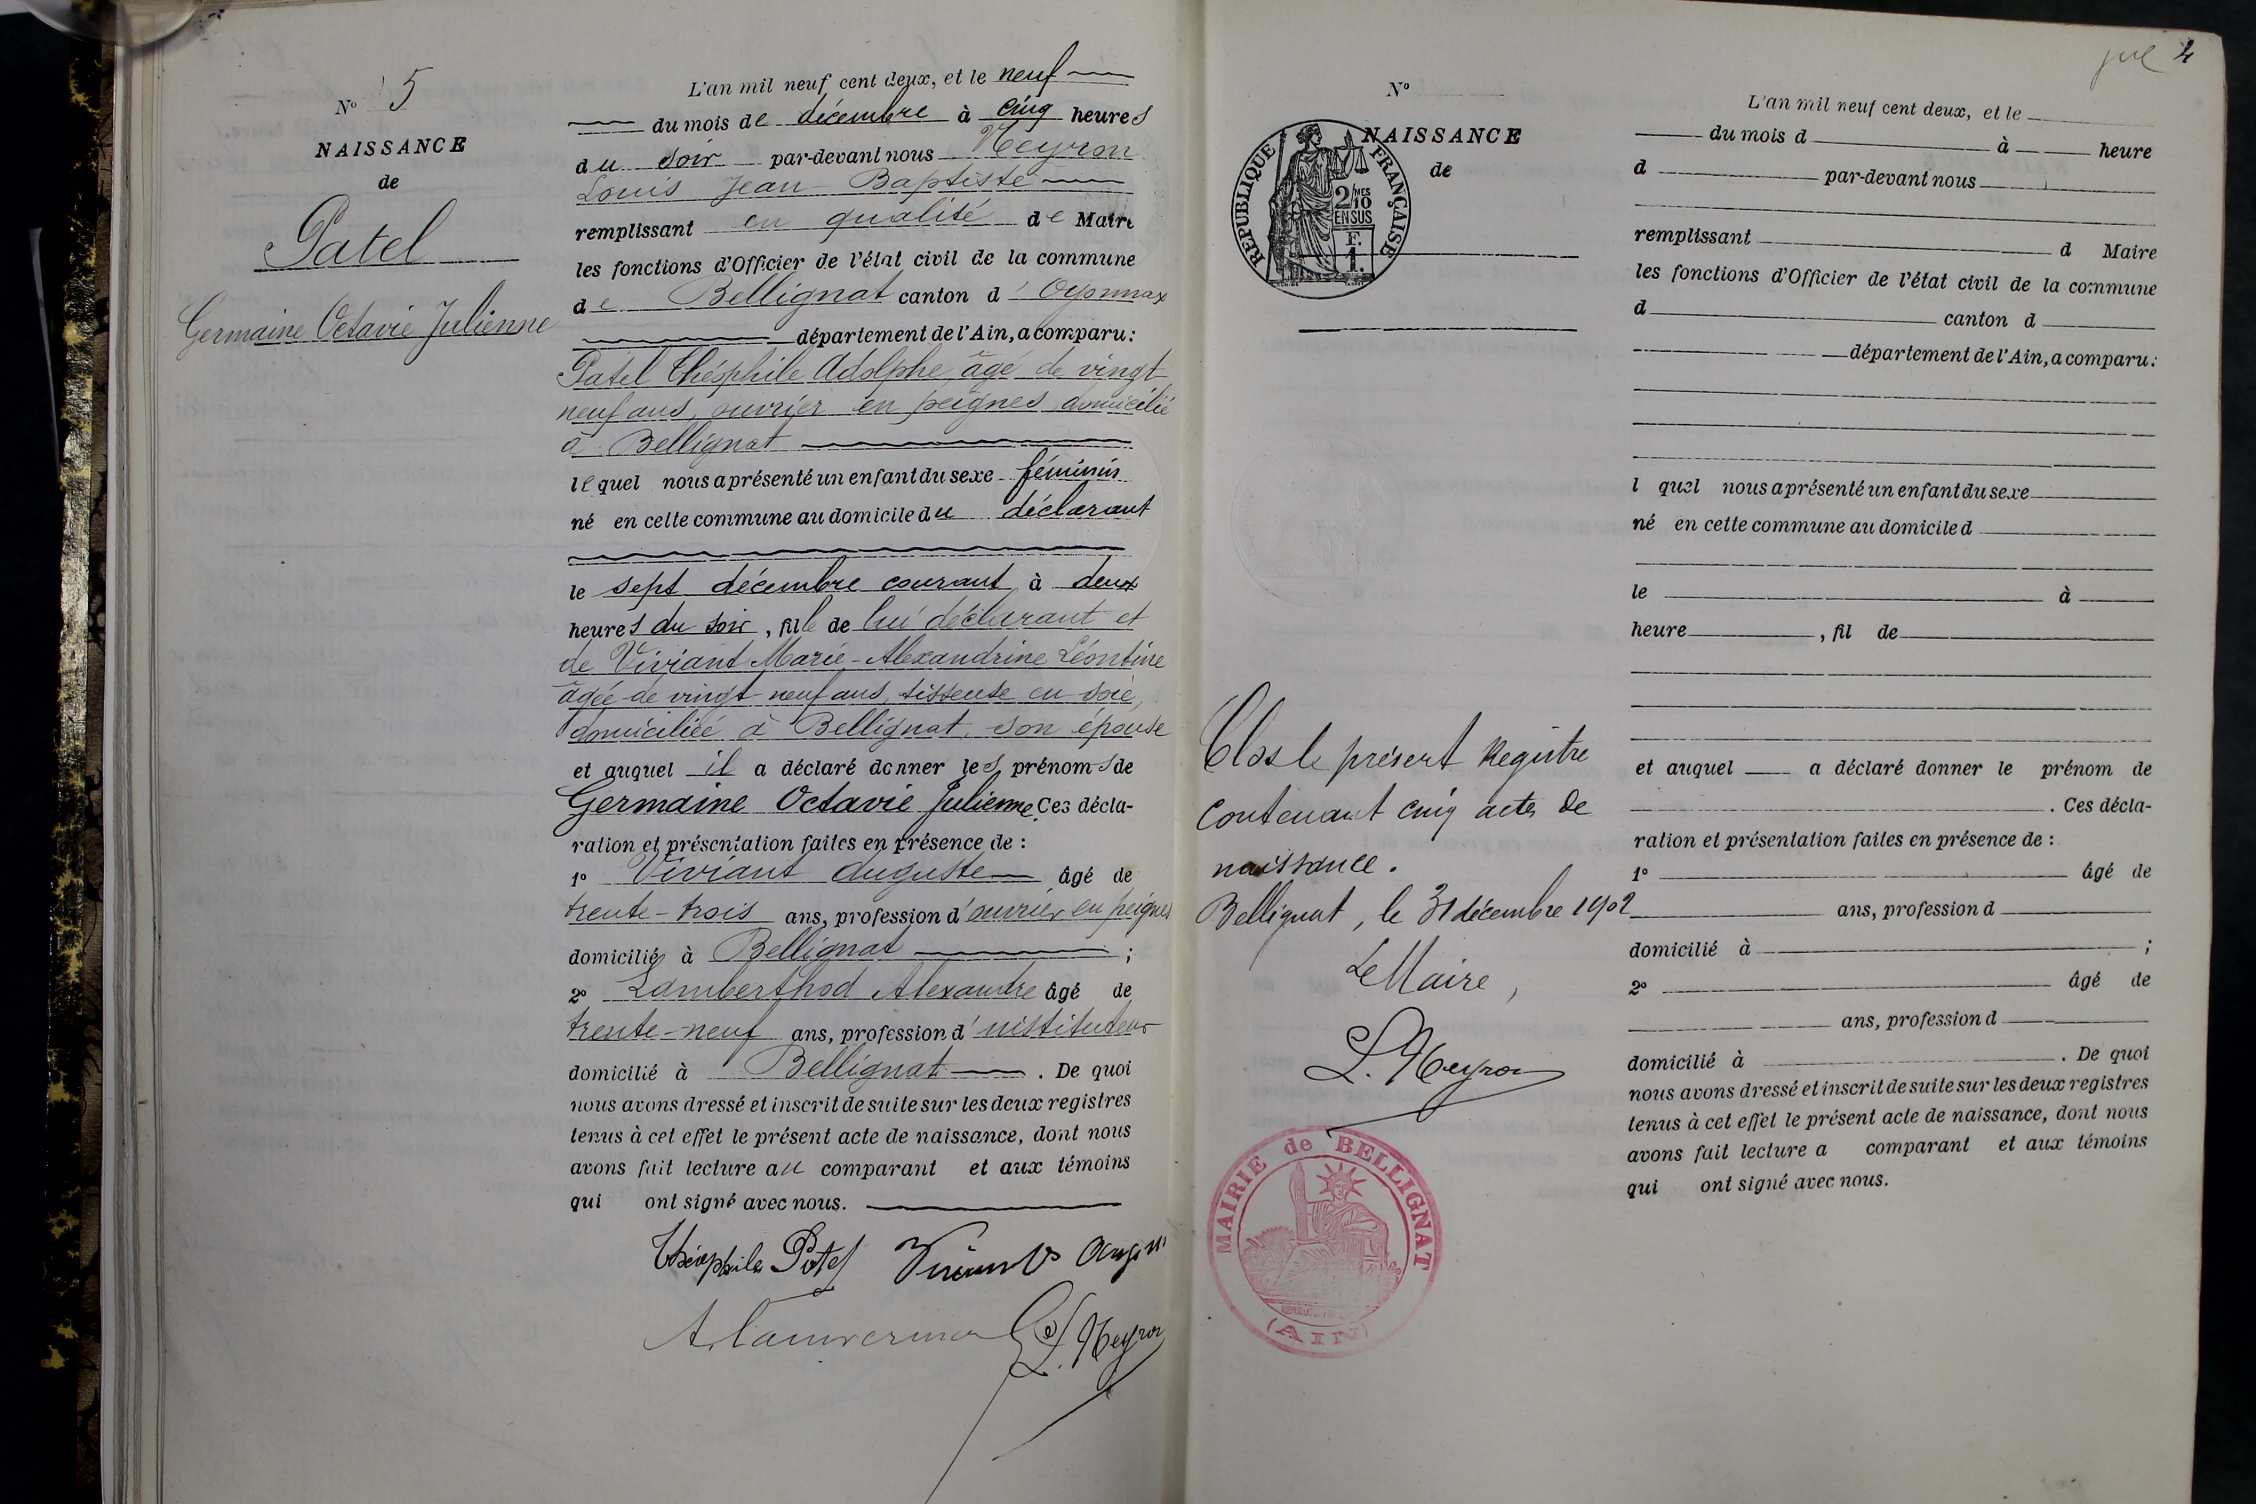 Nº 5
NAISSANCE
de
Patel
Germaine Octavie Julienne
L'an mil neuf cent deux, et le neuf
du mois de décembre à cinq heures
du soir par-devant nous Neyron
Louis Jean Baptiste
remplissant en qualité de Maire
les fonctions d'Officier de l'état civil de la commune
de Bellignat canton d'Oyonnax
département de l'Ain, a comparu:
Patel Théophile Adolphe, âgé de vingt
neuf ans, ouvrier en peignes, domicilié
à Bellignat
lequel nous a présenté un enfant du sexe féminin
né en cette commune au domicile du déclarant
le sept décembre courant à deux
heures du soir, fille de lui déclarant et
de Viviant Marie-Alexandrine Léontine
âgée de vingt-neuf ans, tisseuse en soie,
domiciliée à Bellignat, son épouse
et auquel il a déclaré donner les prénoms de
Germaine Octavie Julienne. Ces décla-
ration et présentation faites en présence de :
1º Viviant Auguste âgé de
trente-trois ans, profession d'ouvrier en peignes
domicilié à Bellignat ;
2º Lamberthod Alexandre âgé de
trente-neuf ans, profession d'instituteur
domicilié à Bellignat . De quoi
nous avons dressé et inscrit de suite sur les deux registres
tenus à cet effet le présent acte de naissance, dont nous
avons fait lecture au comparant et aux témoins
qui ont signé avec nous.
Théophile Patel
L. Neyron
4
Nº
NAISSANCE
de
REPUBLIQUE FRANÇAISE
2/10 MES
EN SUS
F.
1.
Clos le présent Registre
contenant cinq actes de
naissance.
Bellignat, le 31 décembre 1902
Le Maire,
L. Neyron
MAIRIE de BELLIGNAT
(AIN)
L'an mil neuf cent deux, et le
du mois d à heure
d par-devant nous
remplissant d Maire
les fonctions d'Officier de l'état civil de la commune
d canton d
département de l'Ain, a comparu:
l quel nous a présenté un enfant du sexe
né en cette commune au domicile d
le à
heure , fil de
et auquel a déclaré donner le prénom de
. Ces décla-
ration et présentation faites en présence de :
1º âgé de
ans, profession d
domicilié à ;
2º âgé de
ans, profession d
domicilié à . De quoi
nous avons dressé et inscrit de suite sur les deux registres
tenus à cet effet le présent acte de naissance, dont nous
avons fait lecture a comparant et aux témoins
qui ont signé avec nous.